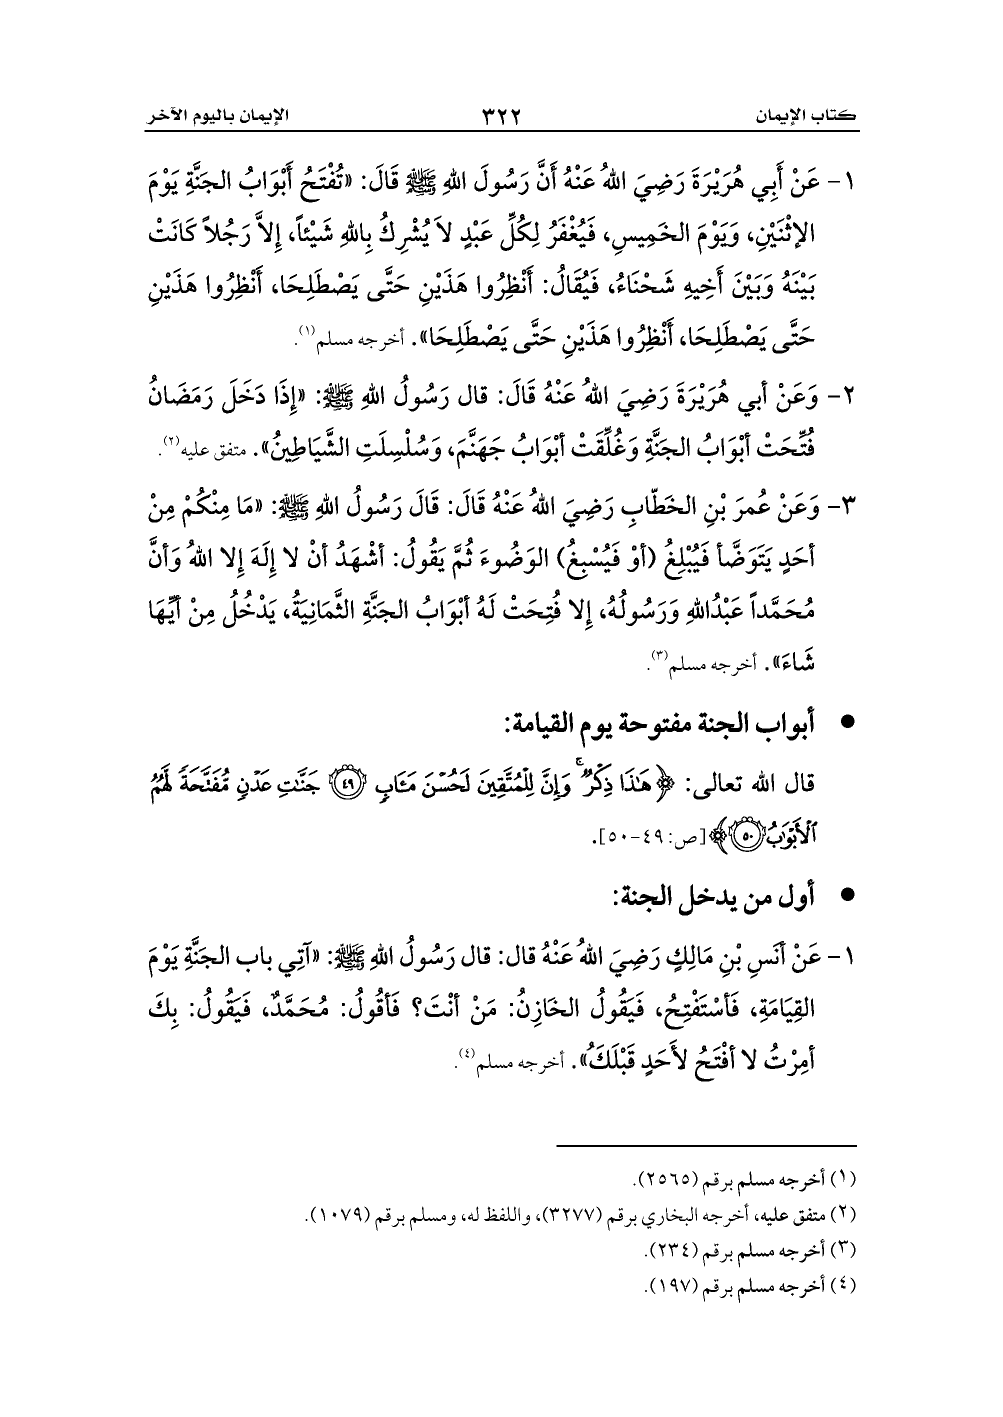 كتاب الإيمان ٣٢٢ الإيمان باليوم الآخر
١- عَنْ أَبِي هُرَيْرَةَ رَضِيَ اللهُ عَنْهُ أَنَّ رَسُولَ اللهِ ﷺ قَالَ: «تُفْتَحُ أَبْوَابُ الجَنَّةِ يَوْمَ
الإثْنَيْنِ، وَيَوْمَ الخَمِيسِ، فَيُغْفَرُ لِكُلِّ عَبْدٍ لاَ يُشْرِكُ بِاللهِ شَيْئاً، إِلاَّ رَجُلاً كَانَتْ
بَيْنَهُ وَبَيْنَ أَخِيهِ شَحْنَاءُ، فَيُقَالُ: أَنْظِرُوا هَذَيْنِ حَتَّى يَصْطَلِحَا، أَنْظِرُوا هَذَيْنِ
حَتَّى يَصْطَلِحَا، أَنْظِرُوا هَذَيْنِ حَتَّى يَصْطَلِحَا». أخرجه مسلم(١).
٢- وَعَنْ أبي هُرَيْرَةَ رَضِيَ اللهُ عَنْهُ قَالَ: قال رَسُولُ اللهِ ﷺ: «إِذَا دَخَلَ رَمَضَانُ
فُتِّحَتْ أبْوَابُ الجَنَّةِ وَغُلِّقَتْ أبْوَابُ جَهَنَّمَ، وَسُلْسِلَتِ الشَّيَاطِينُ». متفق عليه(٢).
٣- وَعَنْ عُمرَ بْنِ الخَطّابِ رَضِيَ اللهُ عَنْهُ قَالَ: قَالَ رَسُولُ اللهِ ﷺ: «مَا مِنْكُمْ مِنْ
أحَدٍ يَتَوَضَّأ فَيُبْلِغُ (أوْ فَيُسْبِغُ) الوَضُوءَ ثُمَّ يَقُولُ: أشْهَدُ أنْ لا إلَهَ إلا اللهُ وَأنَّ
مُحَمَّداً عَبْدُاللهِ وَرَسُولُهُ، إلا فُتِحَتْ لَهُ أبْوَابُ الجَنَّةِ الثَّمَانِيَةُ، يَدْخُلُ مِنْ أيِّهَا
شَاءَ». أخرجه مسلم(٣).
● أبواب الجنة مفتوحة يوم القيامة:
قال الله تعالى: ﴿هَٰذَا ذِكْرٌ ۚ وَإِنَّ لِلْمُتَّقِينَ لَحُسْنَ مَـَٔابٍ ٤٩ جَنَّٰتِ عَدْنٍ مُّفَتَّحَةً لَّهُمُ
ٱلْأَبْوَٰبُ ٥٠﴾ [ص: ٤٩-٥٠].
● أول من يدخل الجنة:
١- عَنْ أَنَسِ بْنِ مَالِكٍ رَضِيَ اللهُ عَنْهُ قال: قال رَسُولُ اللهِ ﷺ: «آتِي باب الجَنَّةِ يَوْمَ
القِيَامَةِ، فَأسْتَفْتِحُ، فَيَقُولُ الخَازِنُ: مَنْ أنْتَ؟ فَأقُولُ: مُحَمَّدٌ، فَيَقُولُ: بِكَ
أمِرْتُ لا أفْتَحُ لأَحَدٍ قَبْلَكَ». أخرجه مسلم(٤).
(١) أخرجه مسلم برقم (٢٥٦٥).
(٢) متفق عليه، أخرجه البخاري برقم (٣٢٧٧)، واللفظ له، ومسلم برقم (١٠٧٩).
(٣) أخرجه مسلم برقم (٢٣٤).
(٤) أخرجه مسلم برقم (١٩٧).